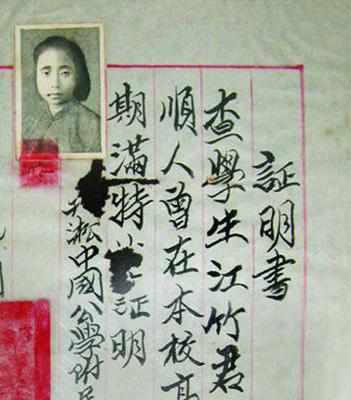 証明書
查學生江竹君
順人曾在本校高
期滿特 証明
淞中國公學附